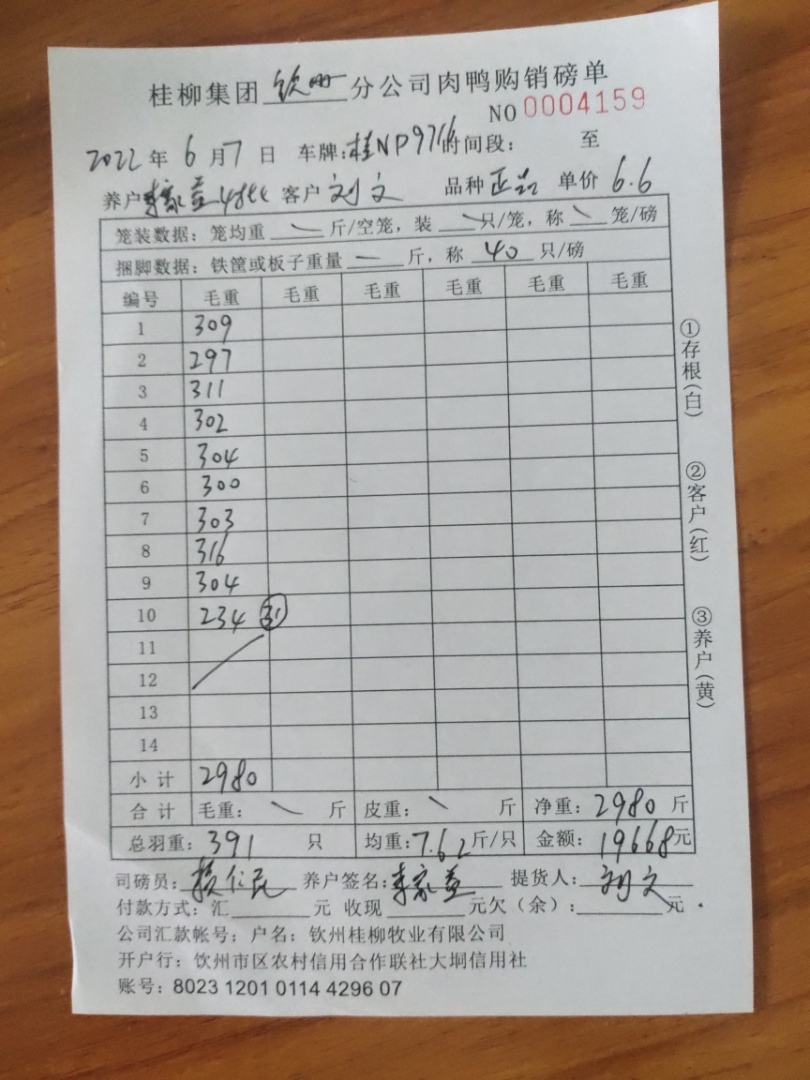 桂柳集团 钦州 分公司肉鸭购销磅单
NO 0004159
2022 年 6 月 7 日 车牌:桂NP9716 时间段: 至
养户 李家益 客户 刘文 品种 正品 单价 6.6
笼装数据:笼均重 \ 斤/空笼,装 \ 只/笼,称 \ 笼/磅
捆脚数据:铁筐或板子重量 — 斤,称 40 只/磅
编号 毛重 毛重 毛重 毛重 毛重 毛重
1 309
2 297
3 311
4 302
5 304
6 300
7 303
8 316
9 304
10 234 31
11
12
13
14
小计 2980
合计 毛重: \ 斤 皮重: \ 斤 净重: 2980 斤
总羽重: 391 只 均重: 7.62 斤/只 金额: 19668 元
司磅员: 仁民 养户签名: 李家益 提货人: 刘文
付款方式:汇 元 收现 元欠(余): 元.
公司汇款帐号;户名:钦州桂柳牧业有限公司
开户行:钦州市区农村信用合作联社大垌信用社
账号:8023 1201 0114 4296 07
①存根(白)
②客户(红)
③养户(黄)